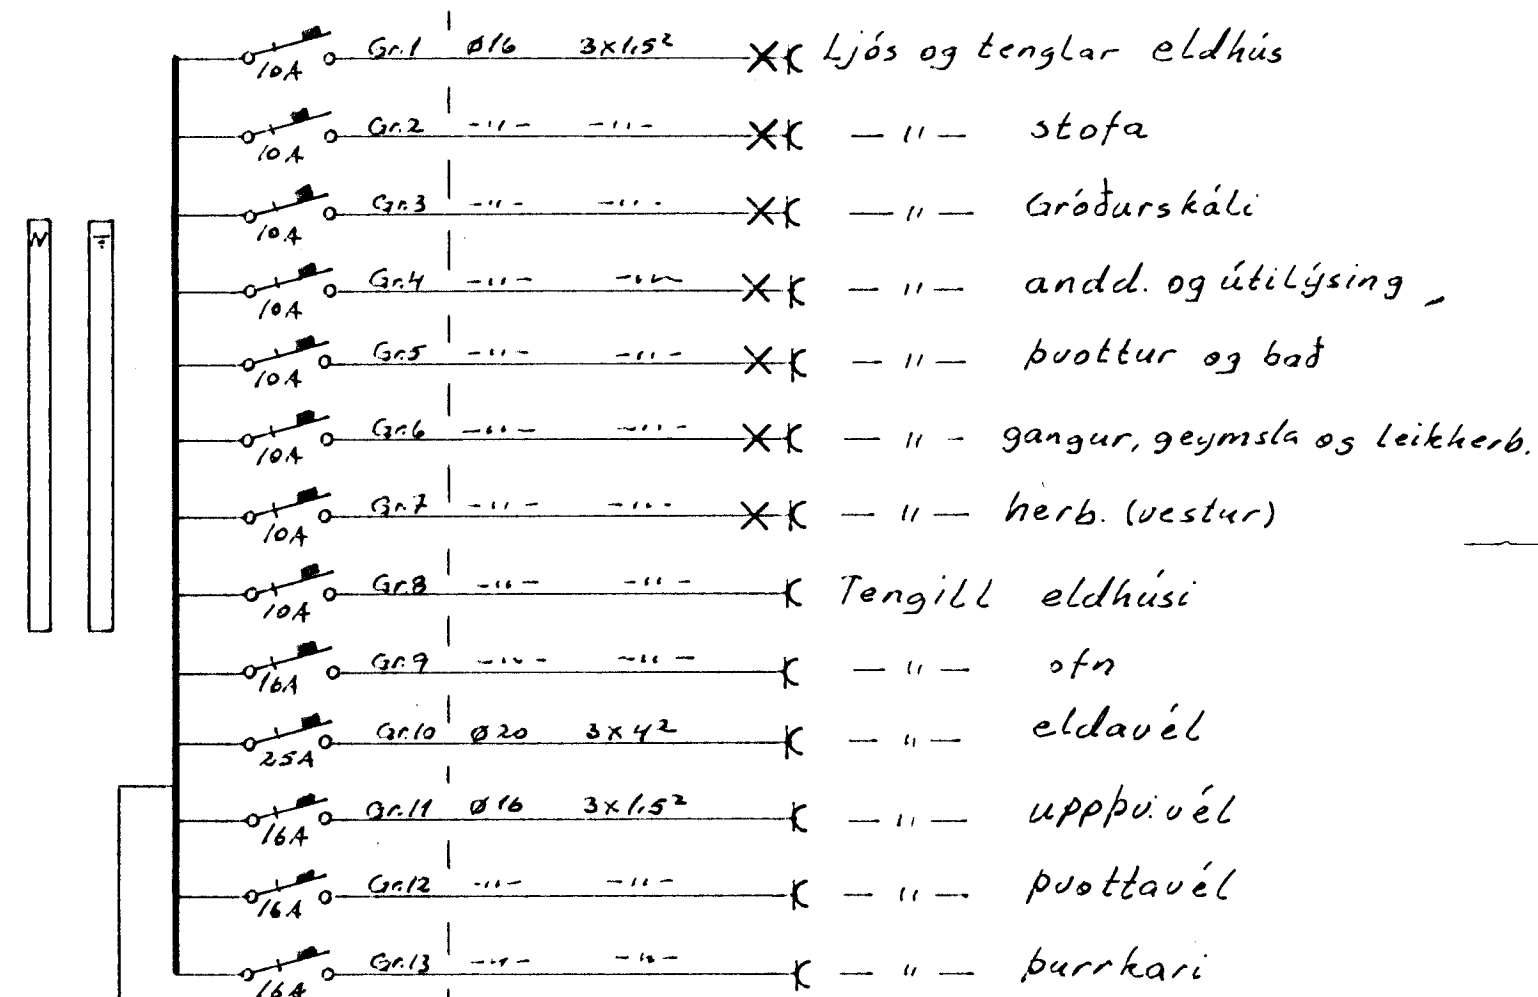 10A Gr.1 ø16 3x1,5² Ljós og tenglar eldhús
10A Gr.2 -"- -"- -"- stofa
10A Gr.3 -"- -"- -"- Gróðurskáli
10A Gr.4 -"- -"- -"- andd. og útilýsing
10A Gr.5 -"- -"- -"- þvottur og bað
10A Gr.6 -"- -"- -"- gangur, geymsla og leikherb.
10A Gr.7 -"- -"- -"- herb. (vestur)
10A Gr.8 -"- -"- Tengill eldhúsi
16A Gr.9 -"- -"- -"- ofn
25A Gr.10 ø20 3x4² -"- eldavél
16A Gr.11 ø16 3x1,5² -"- uppþv.vél
16A Gr.12 -"- -"- -"- þvottavél
16A Gr.13 -"- -"- -"- þurrkari
N